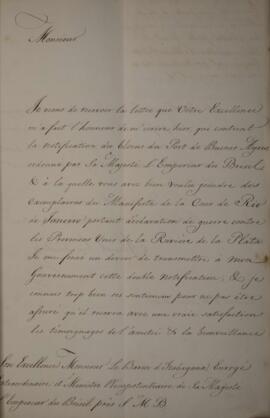 Monsieur
Je viens de recevoir la lettre que Votre Excellence
m'a fait l'honneur de m'écrire hier, qui contient
la notification du blocus du Port de Buenos Ayres
ordonné par Sa Majesté L'Empereur du Brésil,
& à la quelle vous avez bien voulu joindre des
exemplaires du Manifeste de la Cour de Rio
de Janeiro portant déclaration de guerre contre
les Provinces Unies de la Rivière de la Plata
Je me fais un devoir de transmettre à mon
Gouvernement cette double notification, & je
connais trop bien ses sentimens pour ne pas être
assuré qu'il recevra avec une vraie satisfaction
les témoignages de l'amitié & de la bienveillance
Son Excellence Monsieur Le Baron d'Itabayana Envoyé
Extraordinaire et Ministre Plénipotentiaire de Sa Majesté
l'Empereur du Brésil près S. M. B.